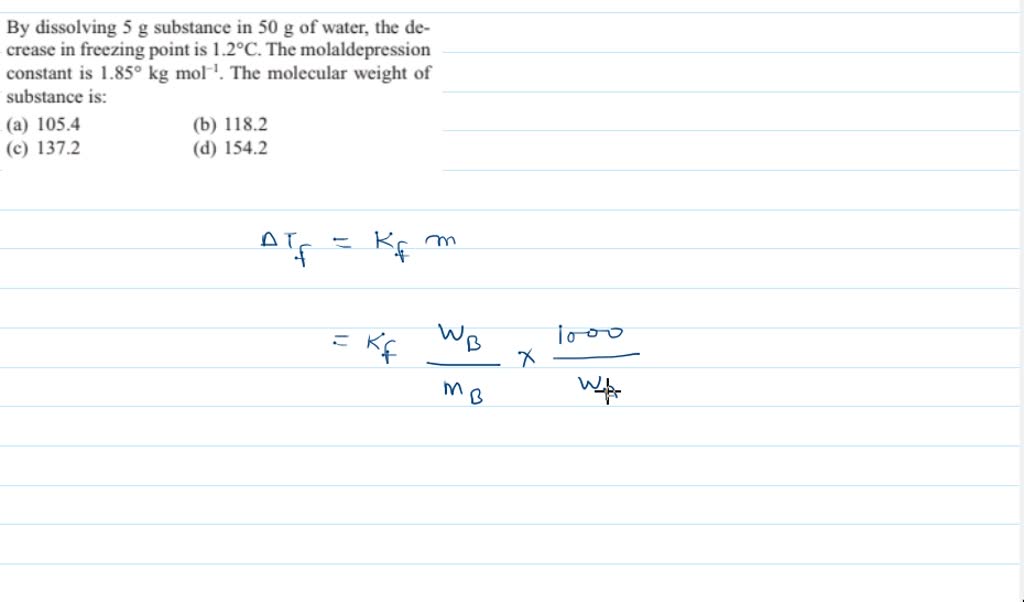 By dissolving 5 g substance in 50 g of water, the de-
crease in freezing point is 1.2°C. The molaldepression
constant is 1.85° kg mol⁻¹. The molecular weight of
substance is:
(a) 105.4 (b) 118.2
(c) 137.2 (d) 154.2
ΔT_f = K_f m
= K_f W_B / m_B × 1000 / W_A